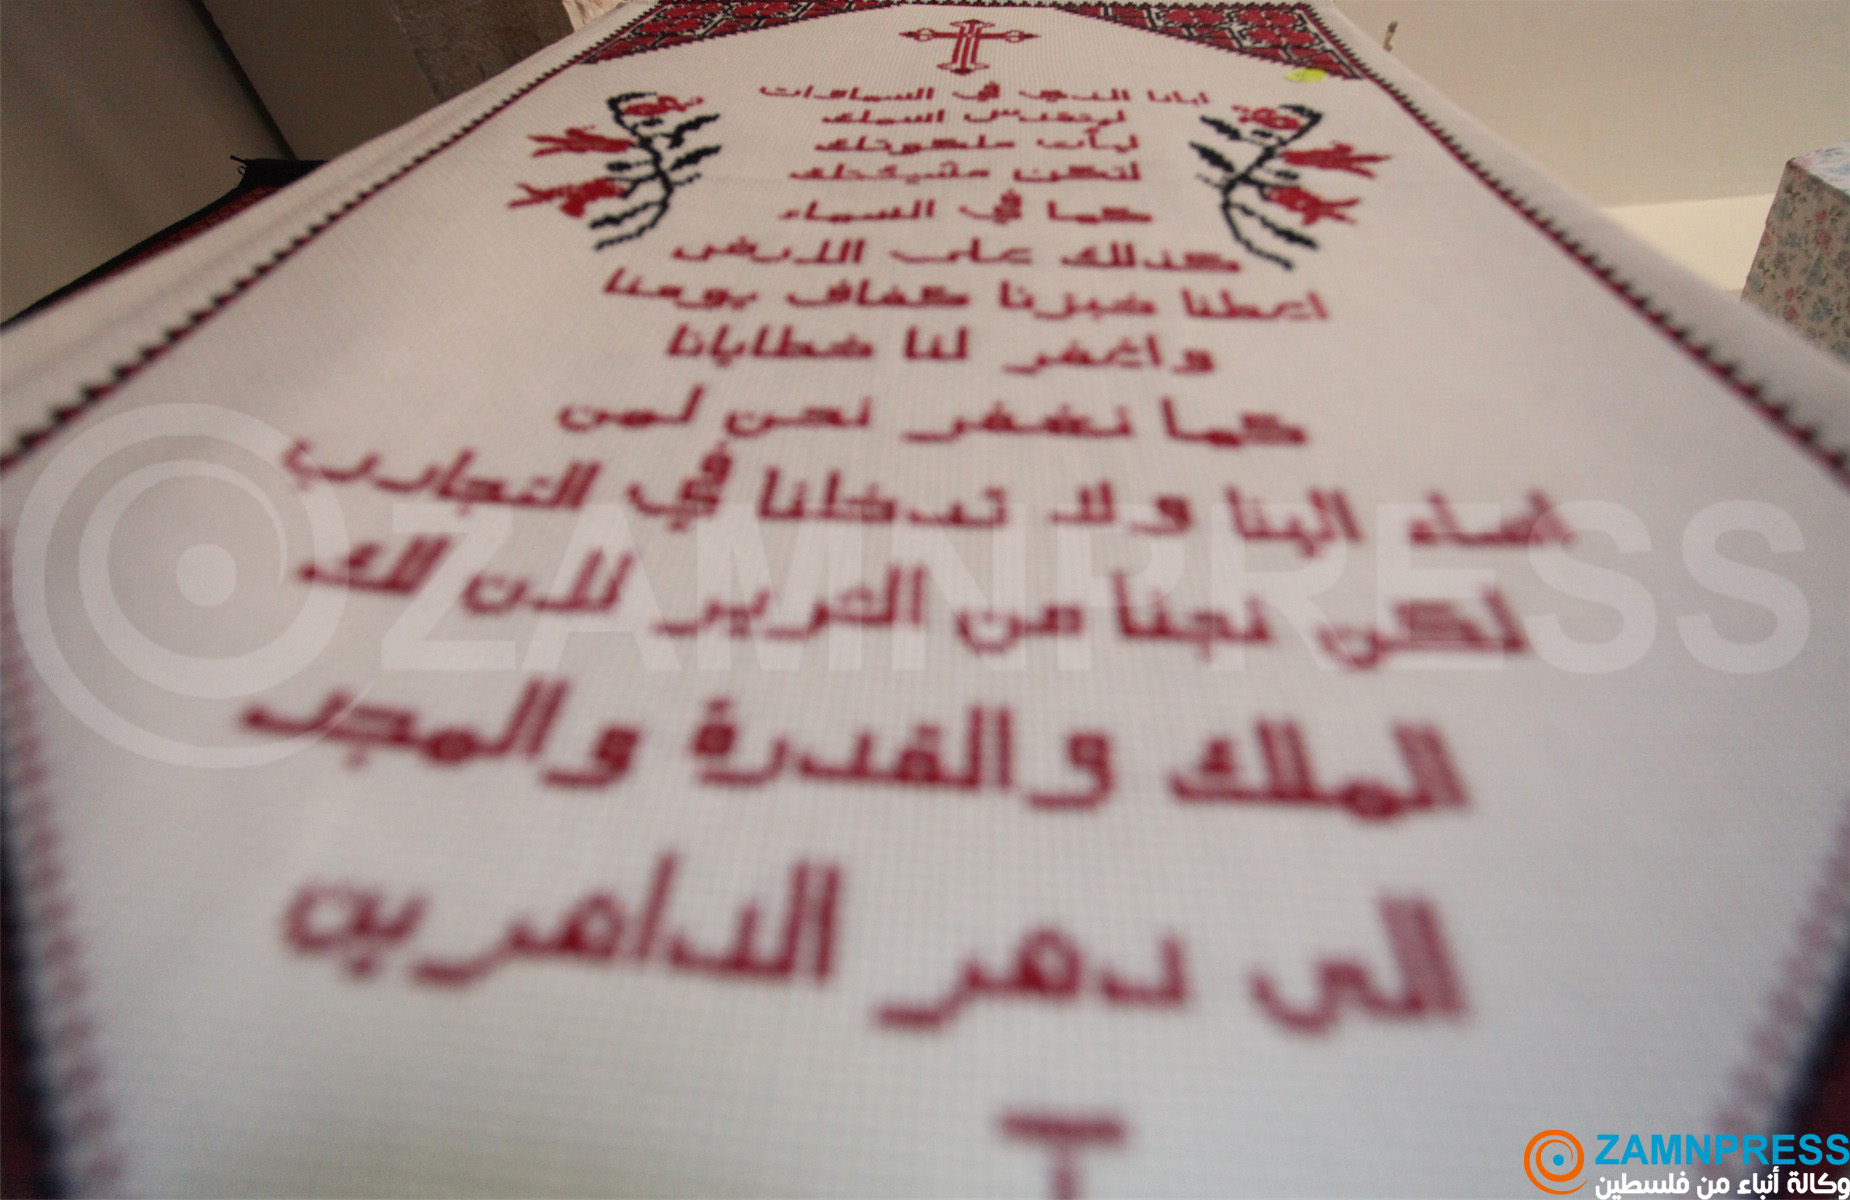 ابانا الذي في السماوات
ليتقدس اسمك
ليأت ملكوتك
لتكن مشيئتك
كما في السماء
كذلك على الارض
اعطنا خبزنا كفاف يومنا
واغفر لنا خطايانا
كما نغفر نحن لمن
اساء الينا ولا تدخلنا في التجارب
لكن نجنا من الشرير لان لك
الملك والقدرة والمجد
الى دهر الداهرين
ZAMNPRESS
ZAMNPRESS
وكالة أنباء من فلسطين